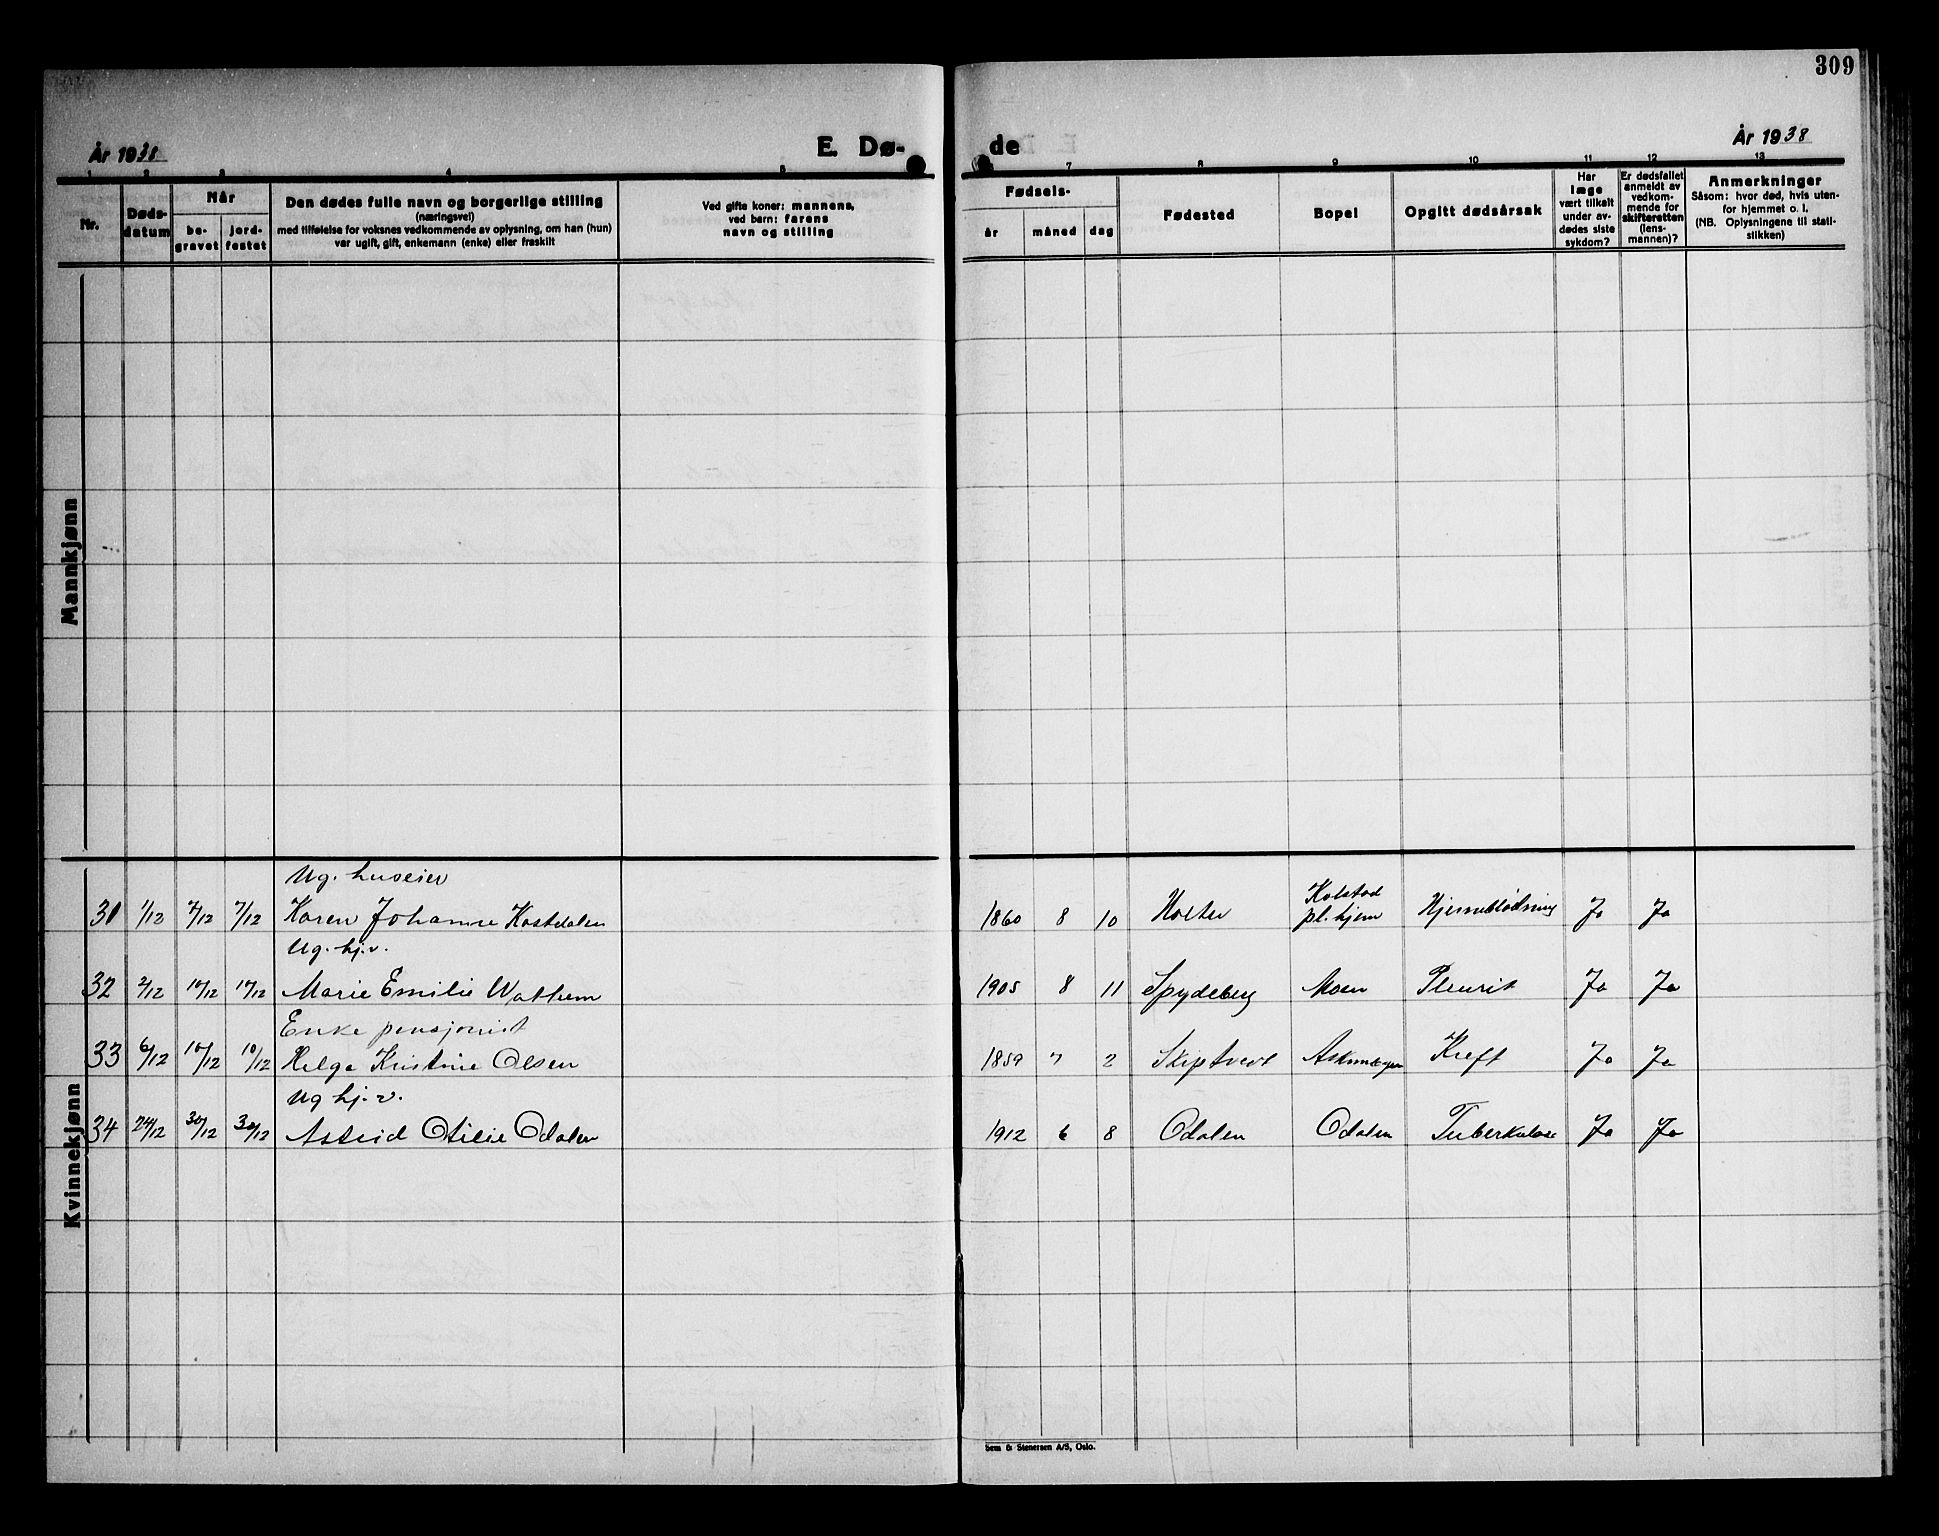 309
År 1938
E. Dø-
de
År 1938
1 2 3 4 5
7 8 9 10 11 12 13
Nr.
Døds-
datum
Når
be-
gravet
jord-
festet
Den dødes fulle navn og borgerlige stilling
(næringsvei)
med tilføielse for voksnes vedkommende av oplysning, om han (hun)
var ugift, gift, enkemann (enke) eller fraskilt
Ved gifte koner: mannens,
ved barn: farens
navn og stilling
Fødsels-
år måned dag
Fødested
Bopel
Opgitt dødsårsak
Har
læge
vært tilkalt
under av-
dødes siste
sykdom?
Er dødsfallet
anmeldt av
vedkom-
mende for
skifteretten
(lens-
mannen)?
Anmerkninger
Såsom: hvor død, hvis uten-
for hjemmet o. l.
(NB. Oplysningene til stati-
stikken)
Mannkjønn
Kvinnekjønn
Ug. huseier
31 1/12 7/12 7/12 Karen Johanne Kostdalen 1860 8 10 Holter Kolstad pl.hjem Hjerneblødning Ja Ja
Ug. hj.v.
32 2/12 12 12 Marie Emilie 1905 8 11 Spydeberg Moen Pleurit Ja Ja
Enke pensjonist
33 6/12 10/12 10/12 Helga Kristine Olsen 1859 7 2 Skiptvedt Askimbyen Kreft Ja Ja
Ug hj.v.
34 24/12 30/12 30/12 Astrid Otilie Odalen 1912 6 8 Odalen Odalen Tuberkulose Ja Ja
Sem & Stenersen A/S, Oslo.